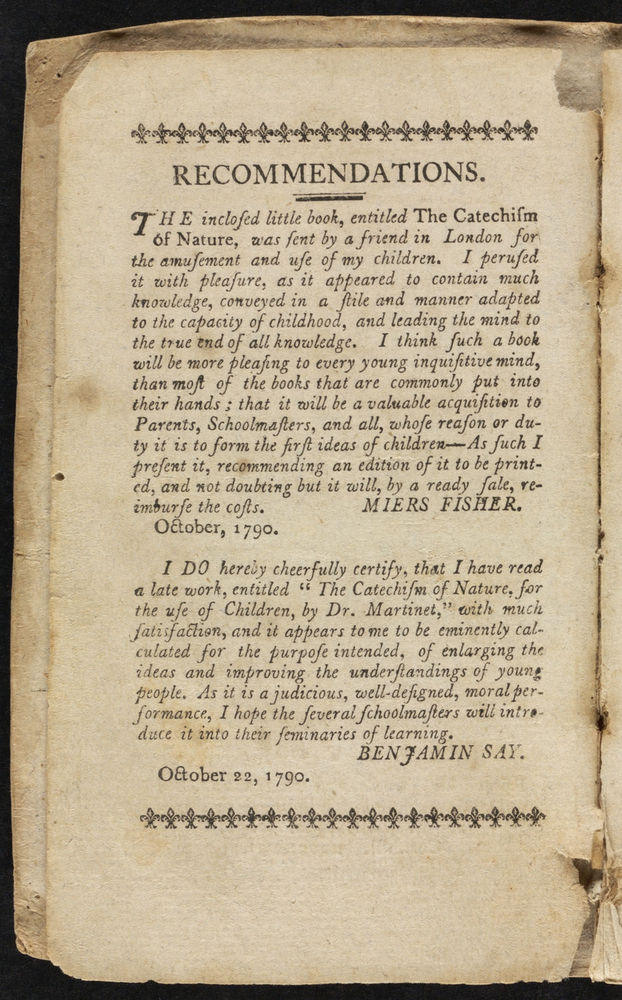 RECOMMENDATIONS.
THE incloſed little book, entitled The Catechiſm
of Nature, was ſent by a friend in London for
the amuſement and uſe of my children. I peruſed
it with pleaſure, as it appeared to contain much
knowledge, conveyed in a ſtile and manner adapted
to the capacity of childhood, and leading the mind to
the true end of all knowledge. I think ſuch a book
will be more pleaſing to every young inquiſitive mind,
than moſt of the books that are commonly put into
their hands; that it will be a valuable acquiſition to
Parents, Schoolmaſters, and all, whoſe reaſon or du-
ty it is to form the firſt ideas of children—As ſuch I
preſent it, recommending an edition of it to be print-
ed, and not doubting but it will, by a ready ſale, re-
imburſe the coſts. MIERS FISHER.
October, 1790.
I DO hereby cheerfully certify, that I have read
a late work, entitled “ The Catechiſm of Nature, for
the uſe of Children, by Dr. Martinet,” with much
ſatisfaction, and it appears to me to be eminently cal-
culated for the purpoſe intended, of enlarging the
ideas and improving the underſtandings of young
people. As it is a judicious, well-deſigned, moral per-
formance, I hope the ſeveral ſchoolmaſters will intro-
duce it into their ſeminaries of learning.
BENJAMIN SAY.
October 22, 1790.